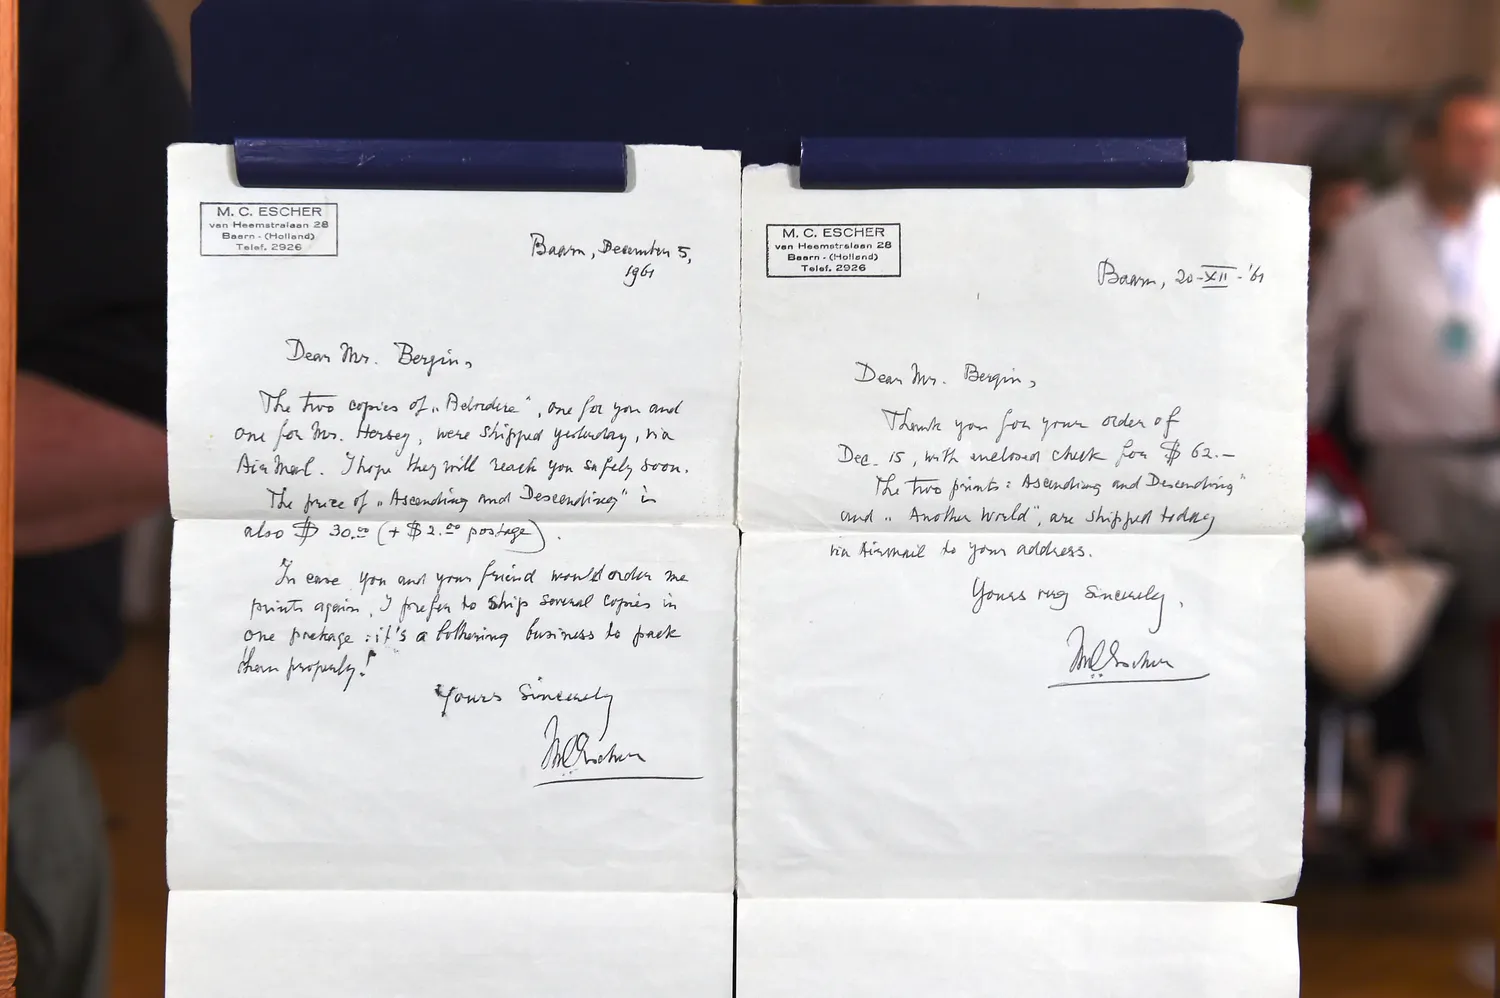 M. C. ESCHER
van Heemstralaan 28
Baarn - (Holland)
Telef. 2926
Baarn, December 5,
1961
Dear Mr. Bergin,
The two copies of „Belvedere", one for you and
one for Mr. Hersey, were shipped yesterday, via
Air Mail. I hope they will reach you safely soon.
The price of „Ascending and Descending" is
also $ 30.00 (+ $ 2.00 postage).
In case you and your friend would order me
prints again, I prefer to ship several copies in
one package: it's a bothering business to pack
them properly!
Yours Sincerely
MCEscher
M. C. ESCHER
van Heemstralaan 28
Baarn - (Holland)
Telef. 2926
Baarn, 20-XII-'61
Dear Mr. Bergin,
Thank you for your order of
Dec. 15, with enclosed check for $ 62.–
The two prints: Ascending and Descending"
and „Another World", are shipped today
via Airmail to your address.
Yours very Sincerely,
MCEscher